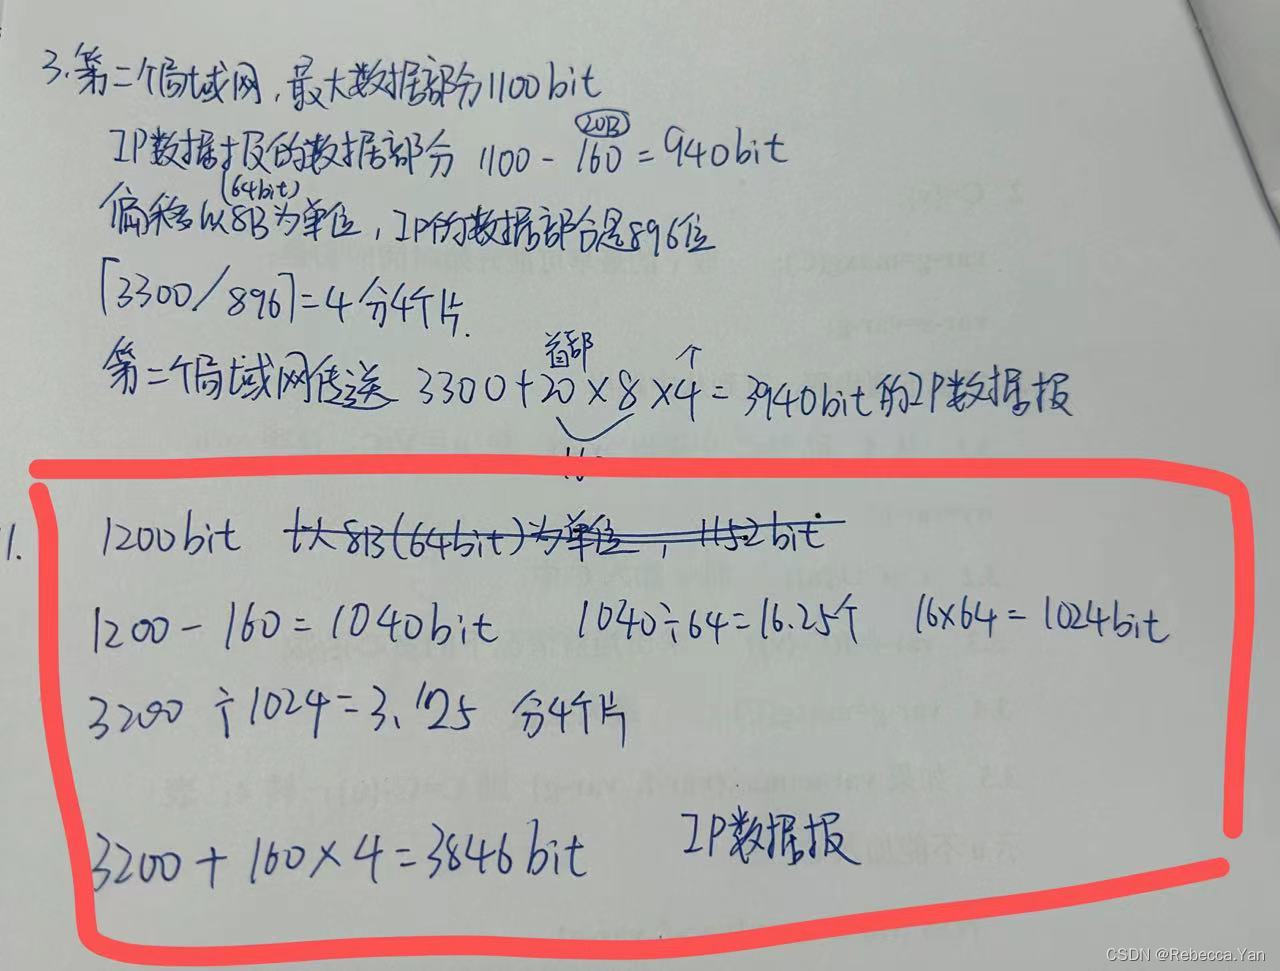 3.第二个局域网,最大数据部分1100bit
20B
IP数据报的数据部分 1100-160=940bit
(64bit)
偏移以8B为单位,IP的数据部分是896位
⌈3300/896⌉=4 分4个片.
首部 个
第二个局域网传送 3300+20×8×4=3940bit的IP数据报
1.
1200bit 以8B(64bit)为单位,1152bit
1200-160=1040bit 1040÷64=16.25个 16×64=1024bit
3200÷1024=3.125 分4个片
3200+160×4=3846bit IP数据报
CSDN @Rebecca.Yan